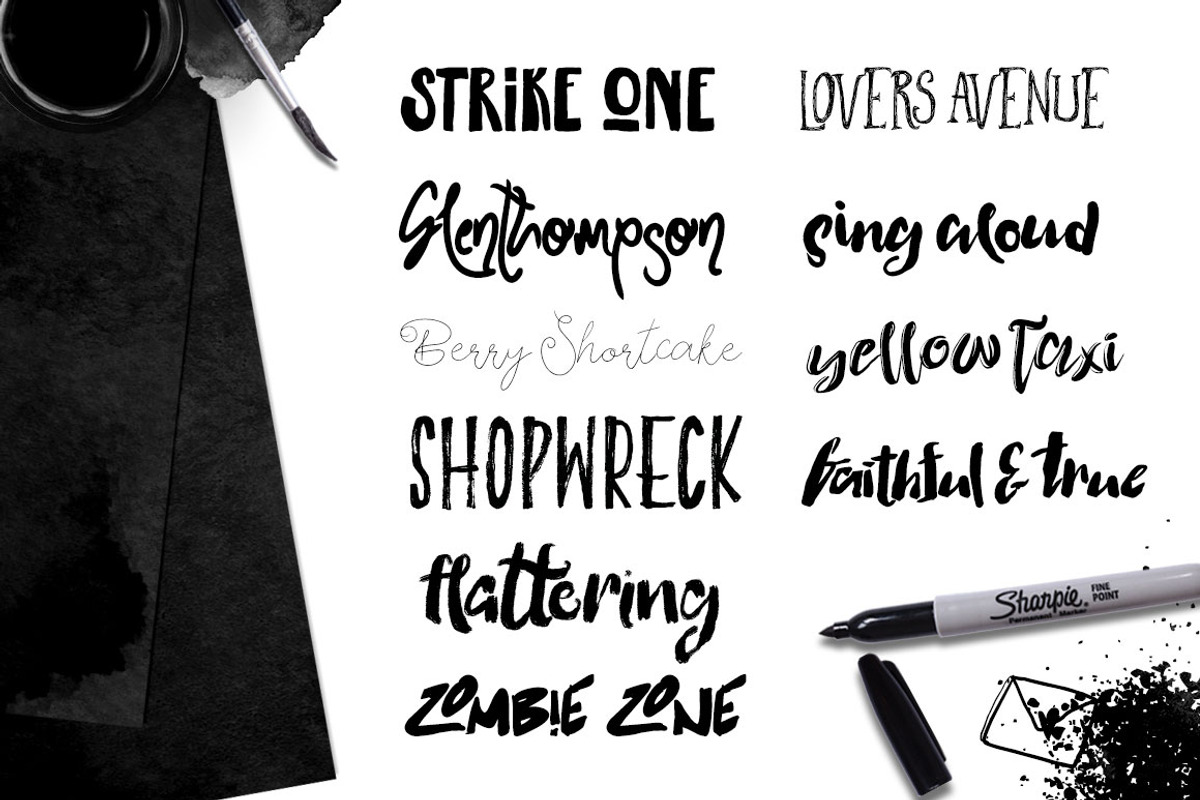 STRiKE ONE
Glenthompson
Berry Shortcake
SHOPWRECK
flattering
ZOMBiE ZONE
LOVERS AVENUE
sing aloud
yellow Taxi
faithful & true
Sharpie® FINE POINT
Permanent Marker